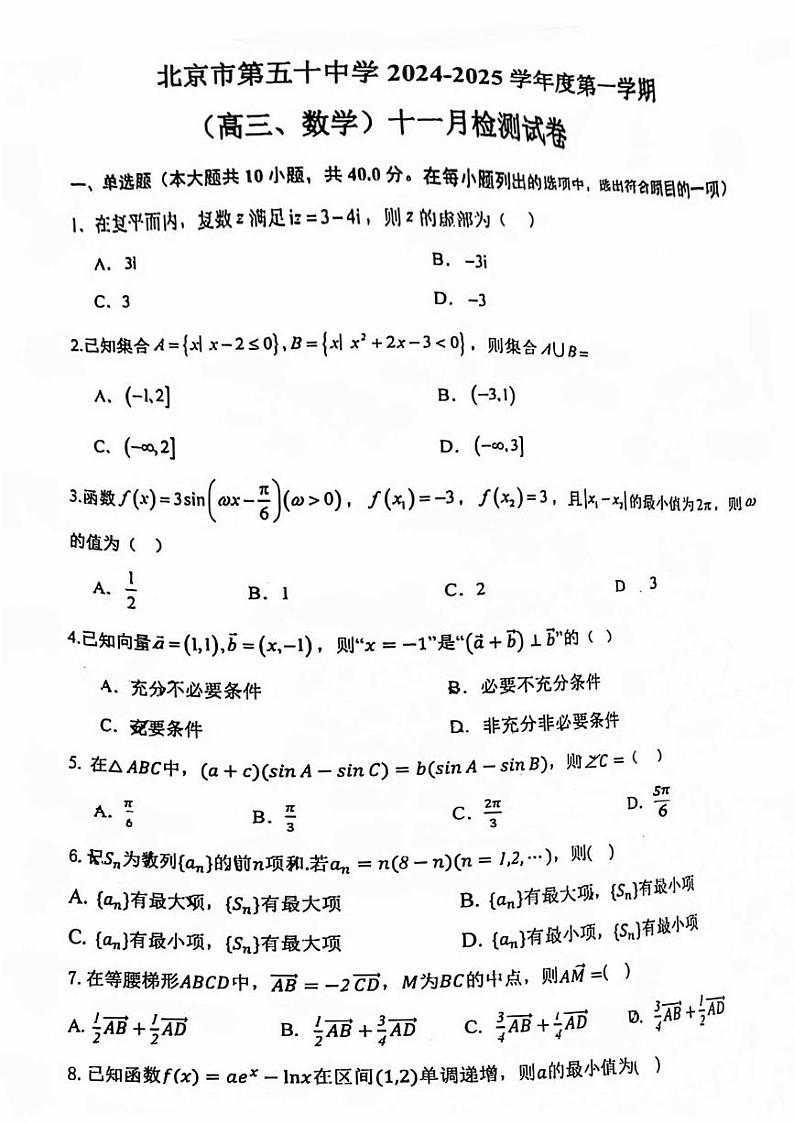 北京市第五十中学 2024-2025 学年度第一学期
（高三、数学）十一月检测试卷
一、单选题（本大题共 10 小题，共 40.0 分。在每小题列出的选项中，选出符合题目的一项）
1、在复平面内，复数 z 满足 iz = 3 − 4i，则 z 的虚部为（ ）
A、3i B. −3i
C、3 D. −3
2.已知集合 A = {x| x − 2 ≤ 0}, B = {x| x² + 2x − 3 < 0}，则集合 A∪B =
A、(−1,2] B. (−3,1)
C、(−∞,2] D. (−∞,3]
3.函数 f(x) = 3sin(ωx − π/6)(ω > 0)，f(x₁) = −3，f(x₂) = 3，且|x₁ − x₂|的最小值为2π，则 ω
的值为（ ）
A、1/2 B. 1 C. 2 D . 3
4.已知向量a⃗ = (1,1), b⃗ = (x,−1)，则“x = −1”是“(a⃗ + b⃗) ⊥ b⃗”的（ ）
A. 充分不必要条件 B. 必要不充分条件
C. 充要条件 D. 非充分非必要条件
5. 在△ABC中，(a + c)(sin A − sin C) = b(sin A − sin B)，则∠C =（ ）
A. π/6 B. π/3 C. 2π/3 D. 5π/6
6. 记Sₙ为数列{aₙ}的前n项和.若aₙ = n(8 − n)(n = 1,2,⋯)，则( )
A. {aₙ}有最大项，{Sₙ}有最大项 B. {aₙ}有最大项，{Sₙ}有最小项
C. {aₙ}有最小项，{Sₙ}有最大项 D. {aₙ}有最小项，{Sₙ}有最小项
7. 在等腰梯形ABCD中，AB⃗ = −2CD⃗，M为BC的中点，则AM⃗ =( )
A. 1/2 AB⃗ + 1/2 AD⃗ B. 1/2 AB⃗ + 3/4 AD⃗ C. 3/4 AB⃗ + 1/4 AD⃗ D. 3/4 AB⃗ + 1/2 AD⃗
8. 已知函数f(x) = aeˣ − lnx在区间(1,2)单调递增，则a的最小值为( )